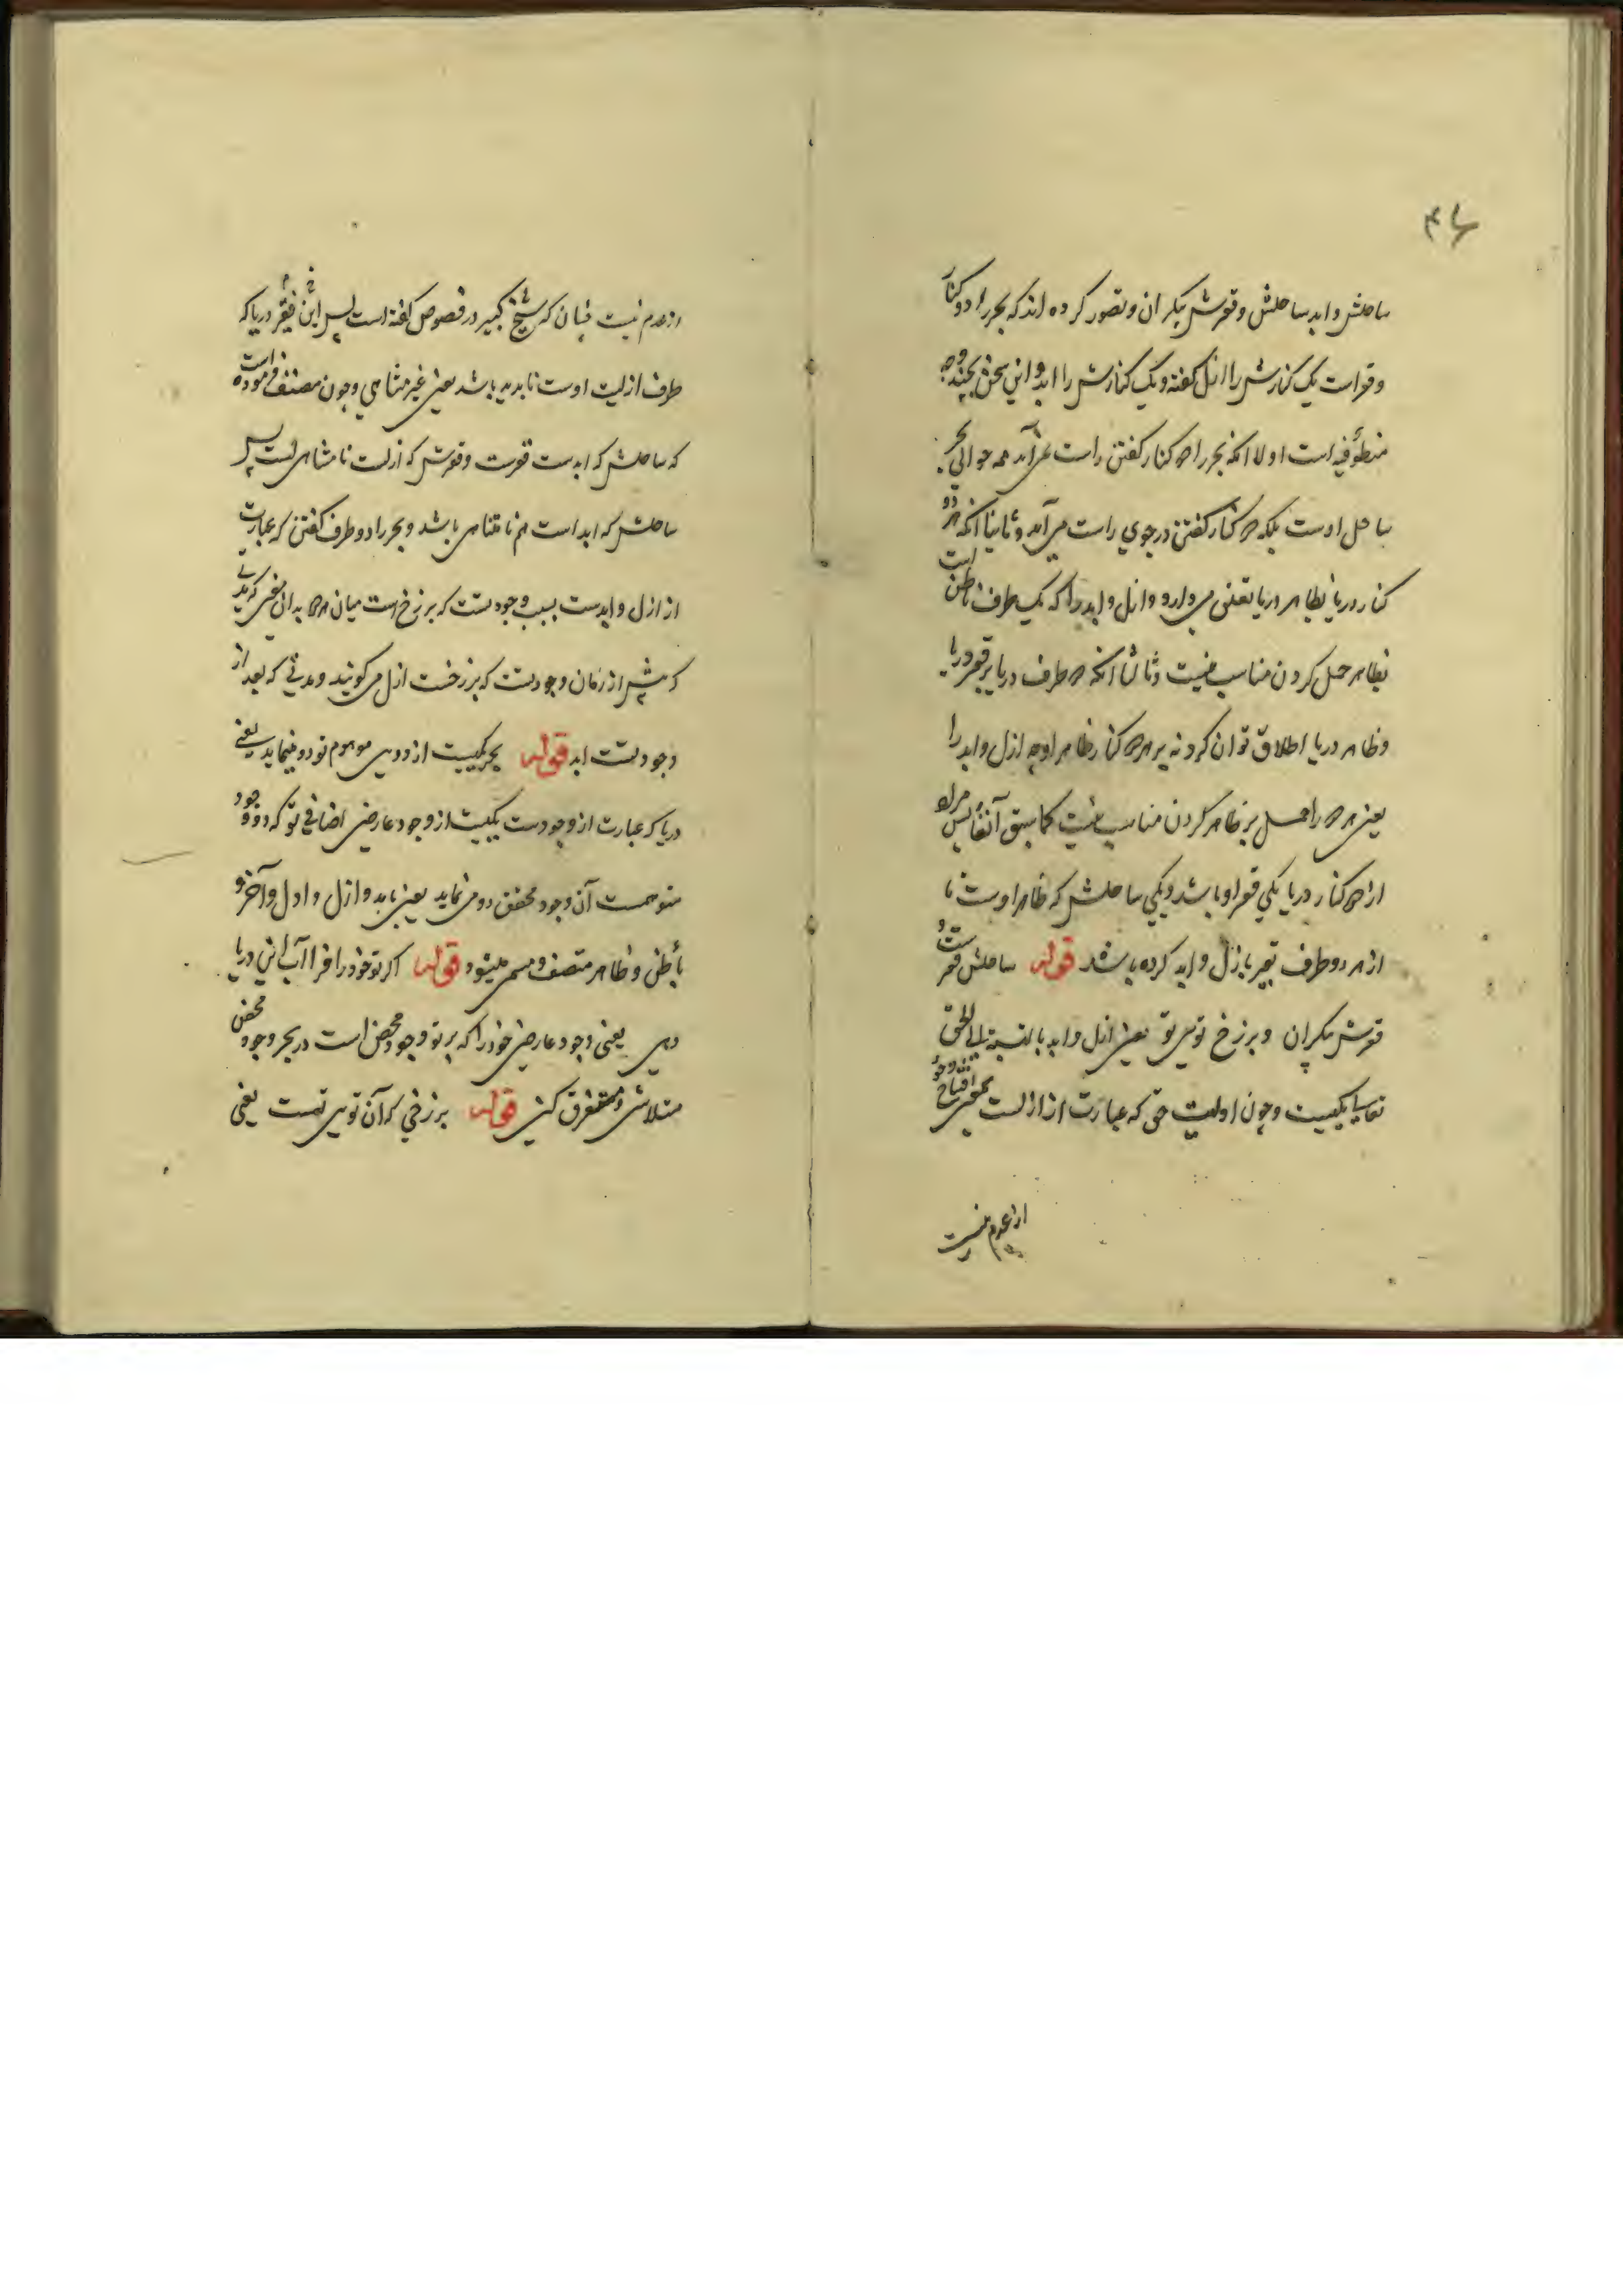 ۴۶
ساحلش و ابد ساحلش و قعرش بیکران و تصور کرده اند که بحر را دو کنار
و قعر است یک کنارش را ازل گفته و یک کنارش را ابد و این سخن بچند وجه
منظور فیه است اولا انکه بحر را دو کنار گفتن راست نمی آید همه حوالی بحر
ساحل اوست بلکه دو کنار گفتن در جوی راست می آید و ثانیا انکه هر دو
کنار دریا بظاهر دریا تعلق میدارد و ازل و ابد را که یک طرف باطن است
بظاهر حمل کردن مناسب نیست و ثالثا انکه دو طرف دریا بر قعر دریا
و ظاهر دریا اطلاق توان کرد نه بر هر دو کنار ظاهر او چه ازل و ابد را
یعنی هر دو را حمل بر ظاهر کردن مناسب نیست کما سبق آنفا پس مراد
از دو کنار دریا یکی قعر او باشد و یکی ساحلش که ظاهر اوست تا
از هر دو طرف تعبیر بازل و ابد کرده باشد قوله ساحلش قعر ست و
قعرش بیکران و برزخ تویی تو یعنی ازل و ابد بالنسبة الی الحق
تعالی یکیست و چون اولیت حق که عبارت از ازلست بمعنی افتتاح وجود
از عدم نیست
از عدم نیست چنان که شیخ کبیر در فصوص گفته است پس این فقیر دریا که
طرف ازلیت اوست ناپدید باشد یعنی غیر متناهی و چون مصنف فرموده است
که ساحلش که ابدست قعرست و قعرش که ازلست نامتناهی است پس
ساحلش که ابد است هم نامتناهی باشد و بحر را دو طرف گفتن که عبارت
از ازل و ابدست بسبب وجود تست که برزخ است میان هر دو بدان معنی که مدتی
که پیش از زمان وجود تست که برزخست ازل میگویند و مدتی که بعد از
وجود تست ابد قوله بحر یکیست از دویی موهوم تو دو مینماید یعنی
دریا که عبارت از وجودست یکیست از وجود عارضی اضافی تو که دو وجود
متوهمست آن وجود محقق دو می نماید یعنی بابد و ازل و اول و آخر و
باطن و ظاهر متصف و مسمی میشود قوله اگر تو خود را فرا آب این دریا
دهی یعنی وجود عارضی خود را که پرتو وجود محض است در بحر وجود محض
متلاشی و مستغرق کنی قوله برزخی که آن تویی تست یعنی